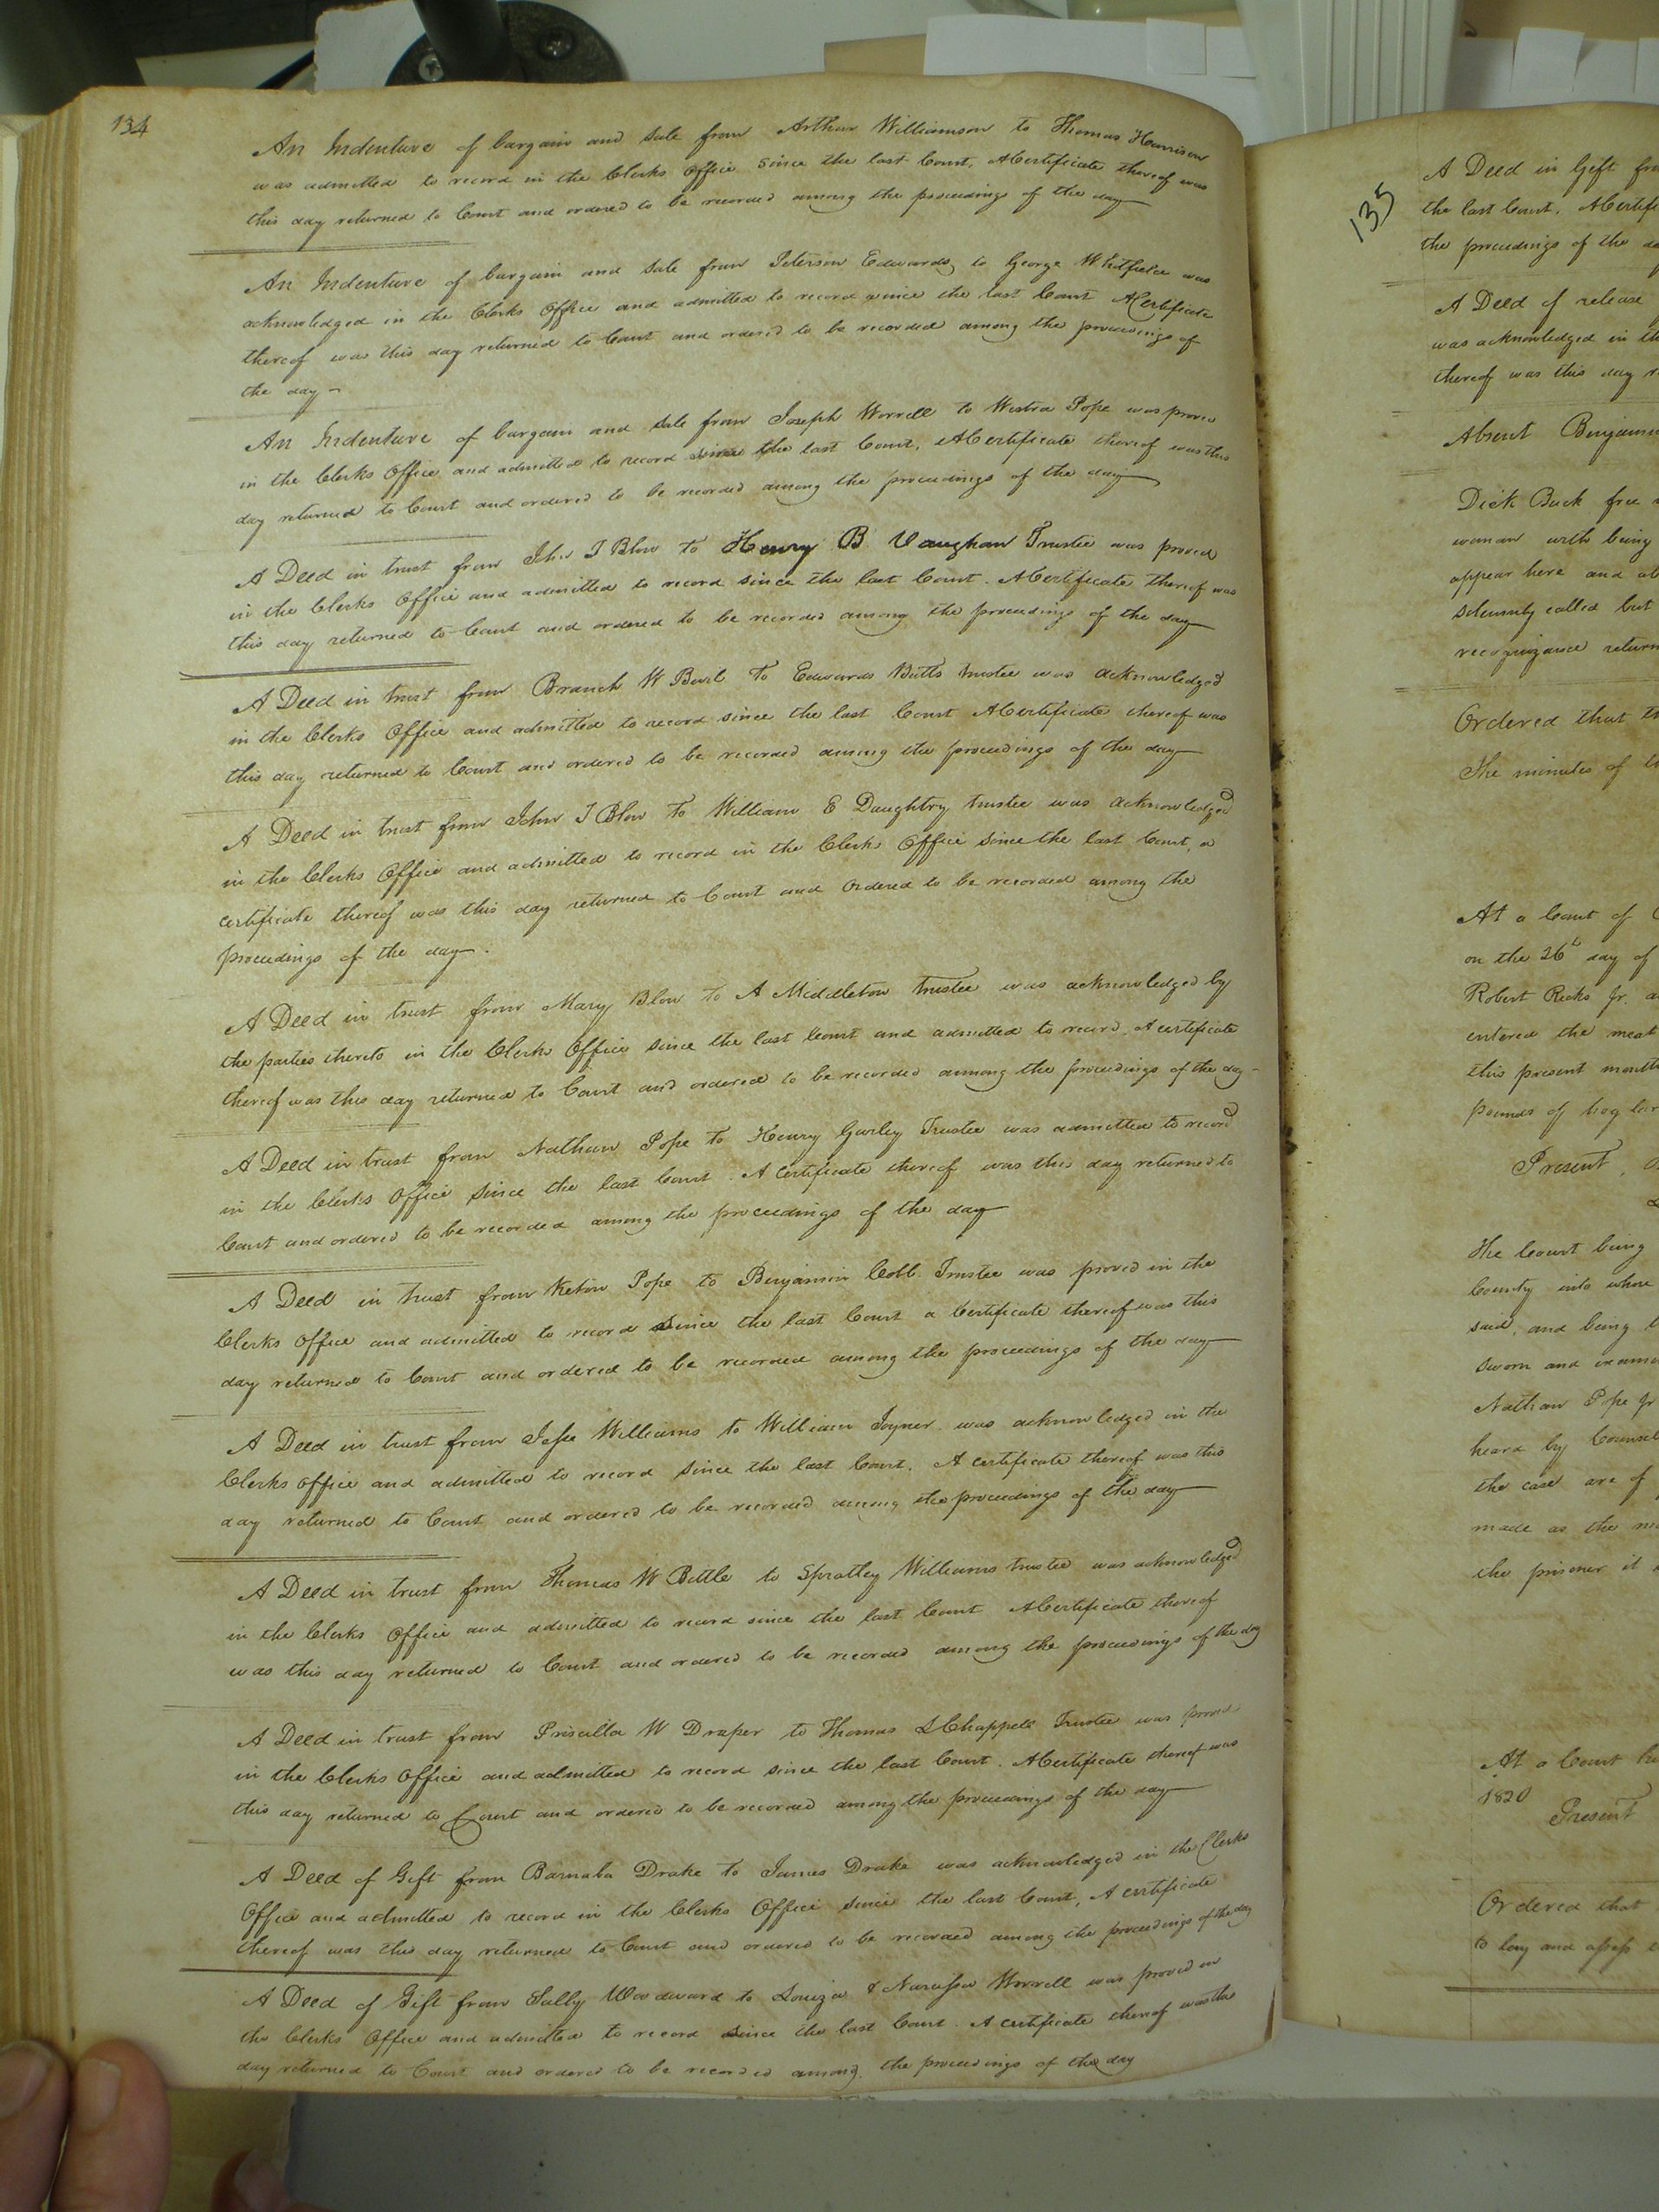 134
An Indenture of bargain and sale from Arthur Williamson to Thomas Harrison
was admitted to record in the Clerks Office since the last Court. A Certificate thereof was
this day returned to Court and ordered to be recorded among the proceedings of the day
An Indenture of bargain and sale from Peterson Edwards to George Whitfield was
acknowledged in the Clerks Office and admitted to record since the last Court A Certificate
thereof was this day returned to Court and ordered to be recorded among the proceedings of
the day
An Indenture of bargain and sale from Joseph Worrell to Westra Pope was proved
in the Clerks Office and admitted to record since the last Court. A Certificate thereof was this
day returned to Court and ordered to be recorded among the proceedings of the day
A Deed in trust from John J Blow to Henry B. Vaughan Trustee was proved
in the Clerks Office and admitted to record since the last Court. A Certificate thereof was
this day returned to Court and ordered to be recorded among the proceedings of the day
A Deed in trust from Branch W to Edwards Butts trustee was acknowledged
in the Clerks Office and admitted to record since the last Court A Certificate thereof was
this day returned to Court and ordered to be recorded among the proceedings of the day
A Deed in trust from John J Blow to William E Daughtry trustee was acknowledged
in the Clerks Office and admitted to record in the Clerks Office since the last Court, a
certificate thereof was this day returned to Court and Ordered to be recorded among the
proceedings of the day.
A Deed in trust from Mary Blow to A Middleton trustee was acknowledged by
the parties thereto in the Clerks Office since the last Court and admitted to record. A certificate
thereof was this day returned to Court and ordered to be recorded among the proceedings of the day
A Deed in trust from Nathan Pope to Henry Gurley Trustee was admitted to record
in the Clerks Office since the last Court. A Certificate thereof was this day returned to
Court and ordered to be recorded among the proceedings of the day
A Deed in trust from Pope to Benjamin Cobb Trustee was proved in the
Clerks Office and admitted to record since the last Court a Certificate thereof was this
day returned to Court and ordered to be recorded among the proceedings of the day
A Deed in trust from Jesse Williams to William Joyner was acknowledged in the
Clerks Office and admitted to record since the last Court. A certificate thereof was this
day returned to Court and ordered to be recorded among the proceedings of the day
A Deed in trust from Thomas W Bittle to Spratley Williams trustee was acknowledged
in the Clerks Office and admitted to record since the last Court A Certificate thereof
was this day returned to Court and ordered to be recorded among the proceedings of the day
A Deed in trust from Priscilla W Draper to Thomas L Chappell Trustee was proved
in the Clerks Office and admitted to record since the last Court. A Certificate thereof was
this day returned to Court and ordered to be recorded among the proceedings of the day
A Deed of Gift from Barnaba Drake to James Drake was acknowledged in the Clerks
Office and admitted to record in the Clerks Office since the last Court, A certificate
thereof was this day returned to Court and ordered to be recorded among the proceedings of the day
A Deed of Gift from Sally Woodward to Louiza & Narcissa Worrell was proved in
the Clerks Office and admitted to record since the last Court. A certificate thereof was this
day returned to Court and ordered to be recorded among the proceedings of the day
135
A Deed in Gift
the last Court.
the proceedings of the
A Deed of release
was acknowledged in
thereof was this day
Absent
Dick Buck free
woman with being
appear here and
solemnly called but
recognizance
Ordered that
The minutes of
At a Court of
on the 26 day of
Robert Ricks Jr.
entered the
this present
pounds of
Present,
The Court being
County into whose
said, and being
sworn and
Nathan Pope Jr
heard by
the case are of
made as the
the prisoner it
At a Court
1820
Present
Ordered that
to lay and assess